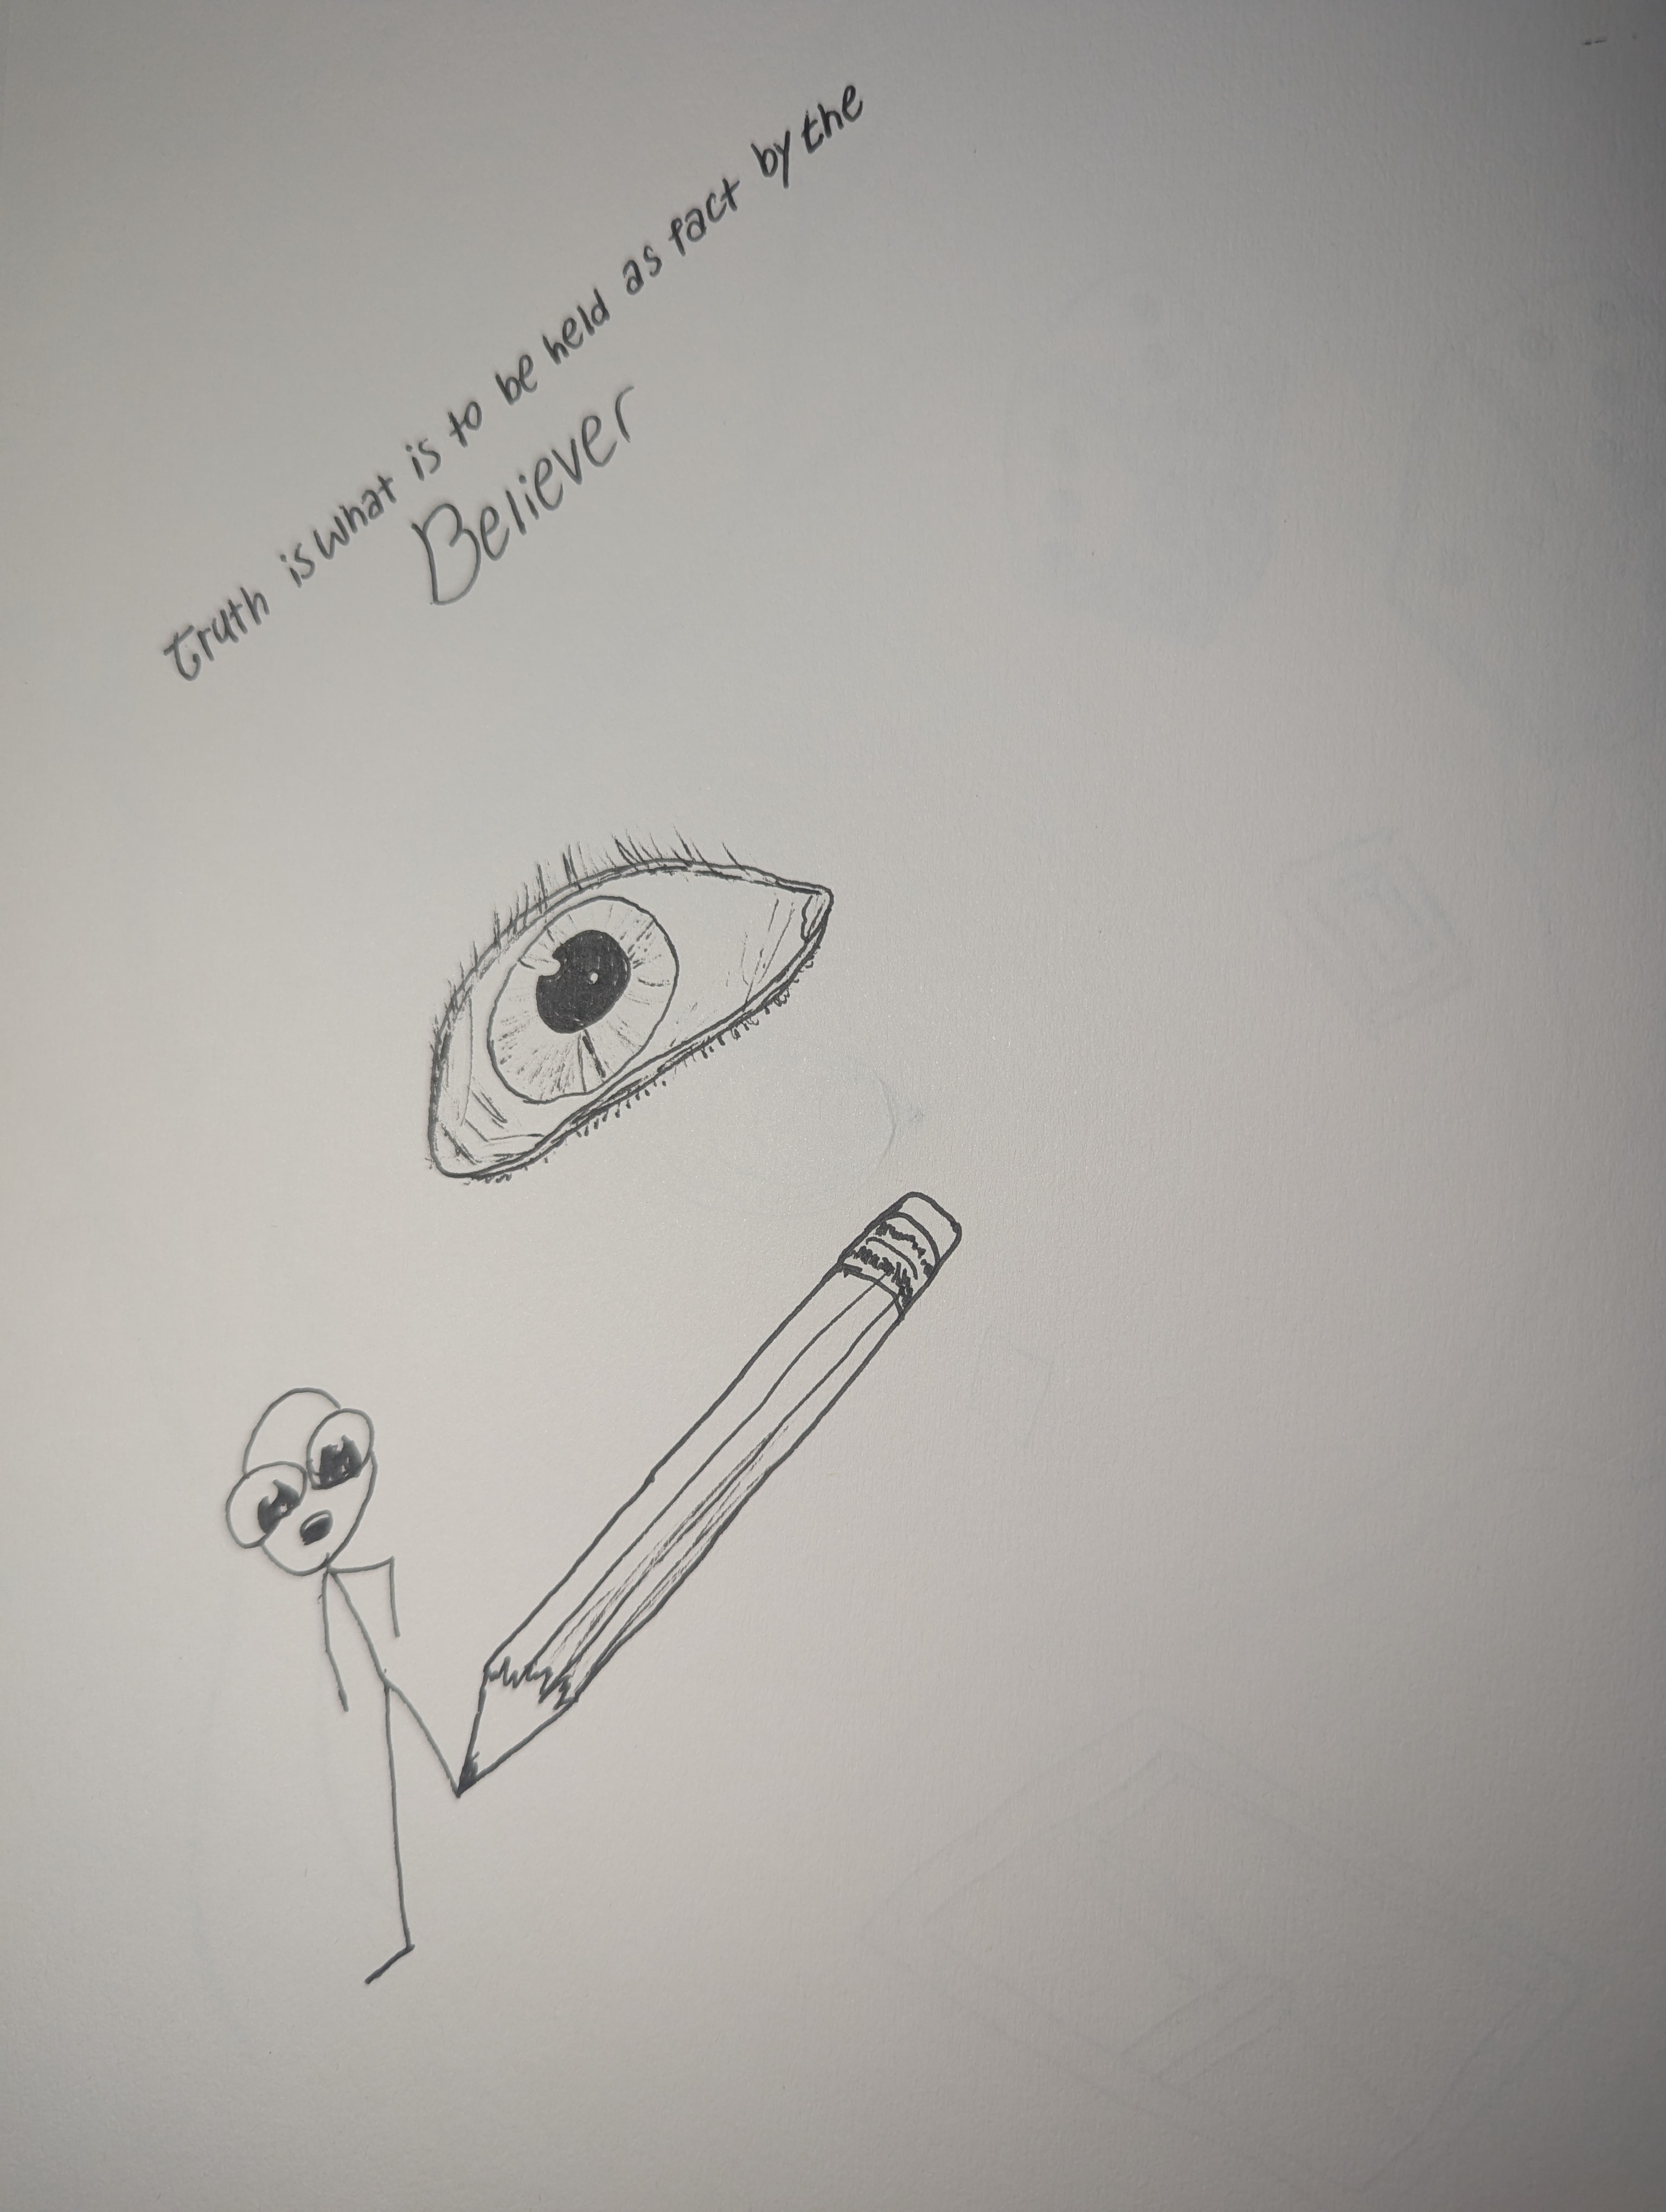 Truth is what is to be held as fact by the
Believer